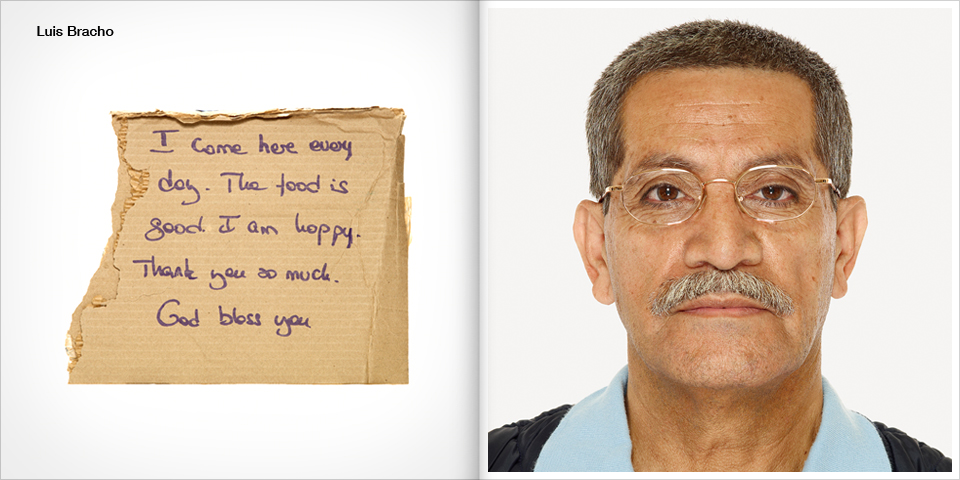 Luis Bracho
I come here every
day. The food is
good. I am happy.
Thank you so much.
God bless you